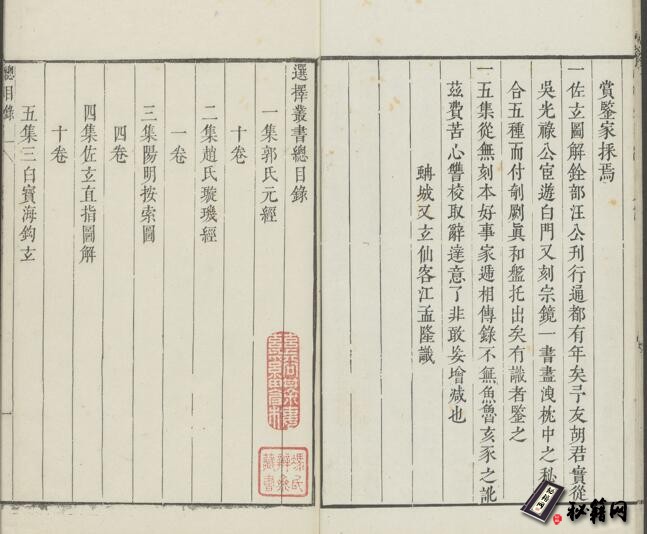 賞鑒家採焉
一佐玄圖解銓部汪公刊行遍都有年矣予友胡君實從
吳光祿公宦遊白門又刻宗鏡一書盡洩枕中之秘
合五種而付剞劂眞和盤托出矣有識者鑒之
一五集從無刻本好事家遞相傳錄不無魚魯亥豕之訛
茲費苦心讐校取辭達意了非敢妄增減也
蚺城又玄仙客江孟隆識
選擇叢書總目錄
一集郭氏元經
十卷
二集趙氏璇璣經
一卷
三集陽明按索圖
四卷
四集佐玄直指圖解
十卷
五集三白寶海鈎玄
總目錄
一
馮氏辨齋藏書
秘籍网